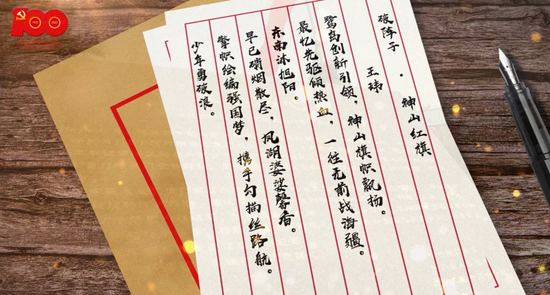 破阵子·神山红旗
王玮
鹭岛创新引领，神山旗帜飘扬。
最忆先驱倾热血，一往无前战海疆。
东南沐旭阳。
早已硝烟散尽，凤湖婆娑馨香。
擎帜绘编强国梦，携手勾描丝路航。
少年勇破浪。
100